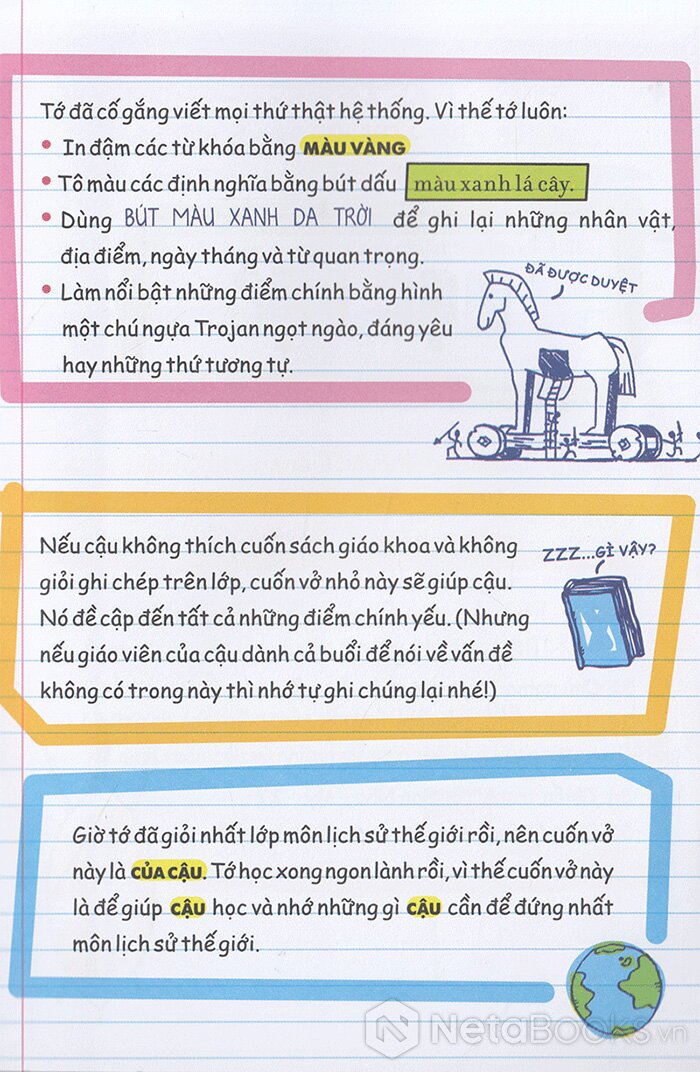 Tớ đã cố gắng viết mọi thứ thật hệ thống. Vì thế tớ luôn:
• In đậm các từ khóa bằng MÀU VÀNG
• Tô màu các định nghĩa bằng bút dấu màu xanh lá cây.
• Dùng BÚT MÀU XANH DA TRỜI để ghi lại những nhân vật,
địa điểm, ngày tháng và từ quan trọng.
• Làm nổi bật những điểm chính bằng hình
một chú ngựa Trojan ngọt ngào, đáng yêu
hay những thứ tương tự.
ĐÃ ĐƯỢC DUYỆT
Nếu cậu không thích cuốn sách giáo khoa và không
giỏi ghi chép trên lớp, cuốn vở nhỏ này sẽ giúp cậu.
Nó đề cập đến tất cả những điểm chính yếu. (Nhưng
nếu giáo viên của cậu dành cả buổi để nói về vấn đề
không có trong này thì nhớ tự ghi chúng lại nhé!)
ZZZ...GÌ VẬY?
Giờ tớ đã giỏi nhất lớp môn lịch sử thế giới rồi, nên cuốn vở
này là CỦA CẬU. Tớ học xong ngon lành rồi, vì thế cuốn vở này
là để giúp CẬU học và nhớ những gì CẬU cần để đứng nhất
môn lịch sử thế giới.
N NetaBooks.vn